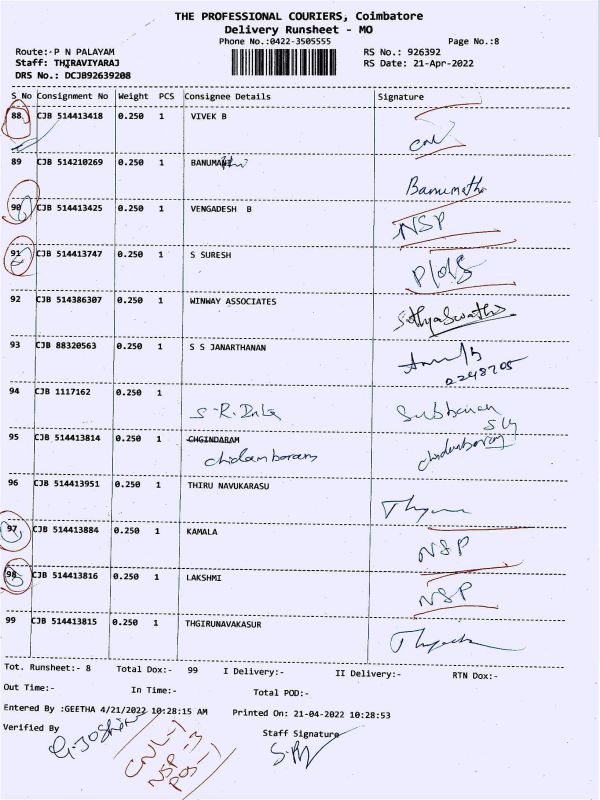 THE PROFESSIONAL COURIERS, Coimbatore
Delivery Runsheet - MO
Phone No.:0422-3505555
Page No.:8
Route:- P N PALAYAM
RS No.: 926392
Staff: THIRAVIYARAJ
RS Date: 21-Apr-2022
DRS No.: DCJB92639208
S No Consignment No Weight PCS Consignee Details Signature
88 CJB 514413418 0.250 1 VIVEK B
89 CJB 514210269 0.250 1 BANUMA
Banumathi
90 CJB 514413425 0.250 1 VENGADESH B
NSP
91 CJB 514413747 0.250 1 S SURESH
92 CJB 514386307 0.250 1 WINWAY ASSOCIATES
93 CJB 88320563 0.250 1 S S JANARTHANAN
94 CJB 1117162 0.250 1
95 CJB 514413814 0.250 1 CHGINDARAM
chidambaram chidambaram
96 CJB 514413951 0.250 1 THIRU NAVUKARASU
97 CJB 514413884 0.250 1 KAMALA
NSP
98 CJB 514413816 0.250 1 LAKSHMI
NSP
99 CJB 514413815 0.250 1 THGIRUNAVAKASUR
Tot. Runsheet:- 8 Total Dox:- 99 I Delivery:- II Delivery:- RTN Dox:-
Out Time:- In Time:- Total POD:-
Entered By :GEETHA 4/21/2022 10:28:15 AM Printed On: 21-04-2022 10:28:53
Verified By Staff Signature
CNL-1
NSP-3